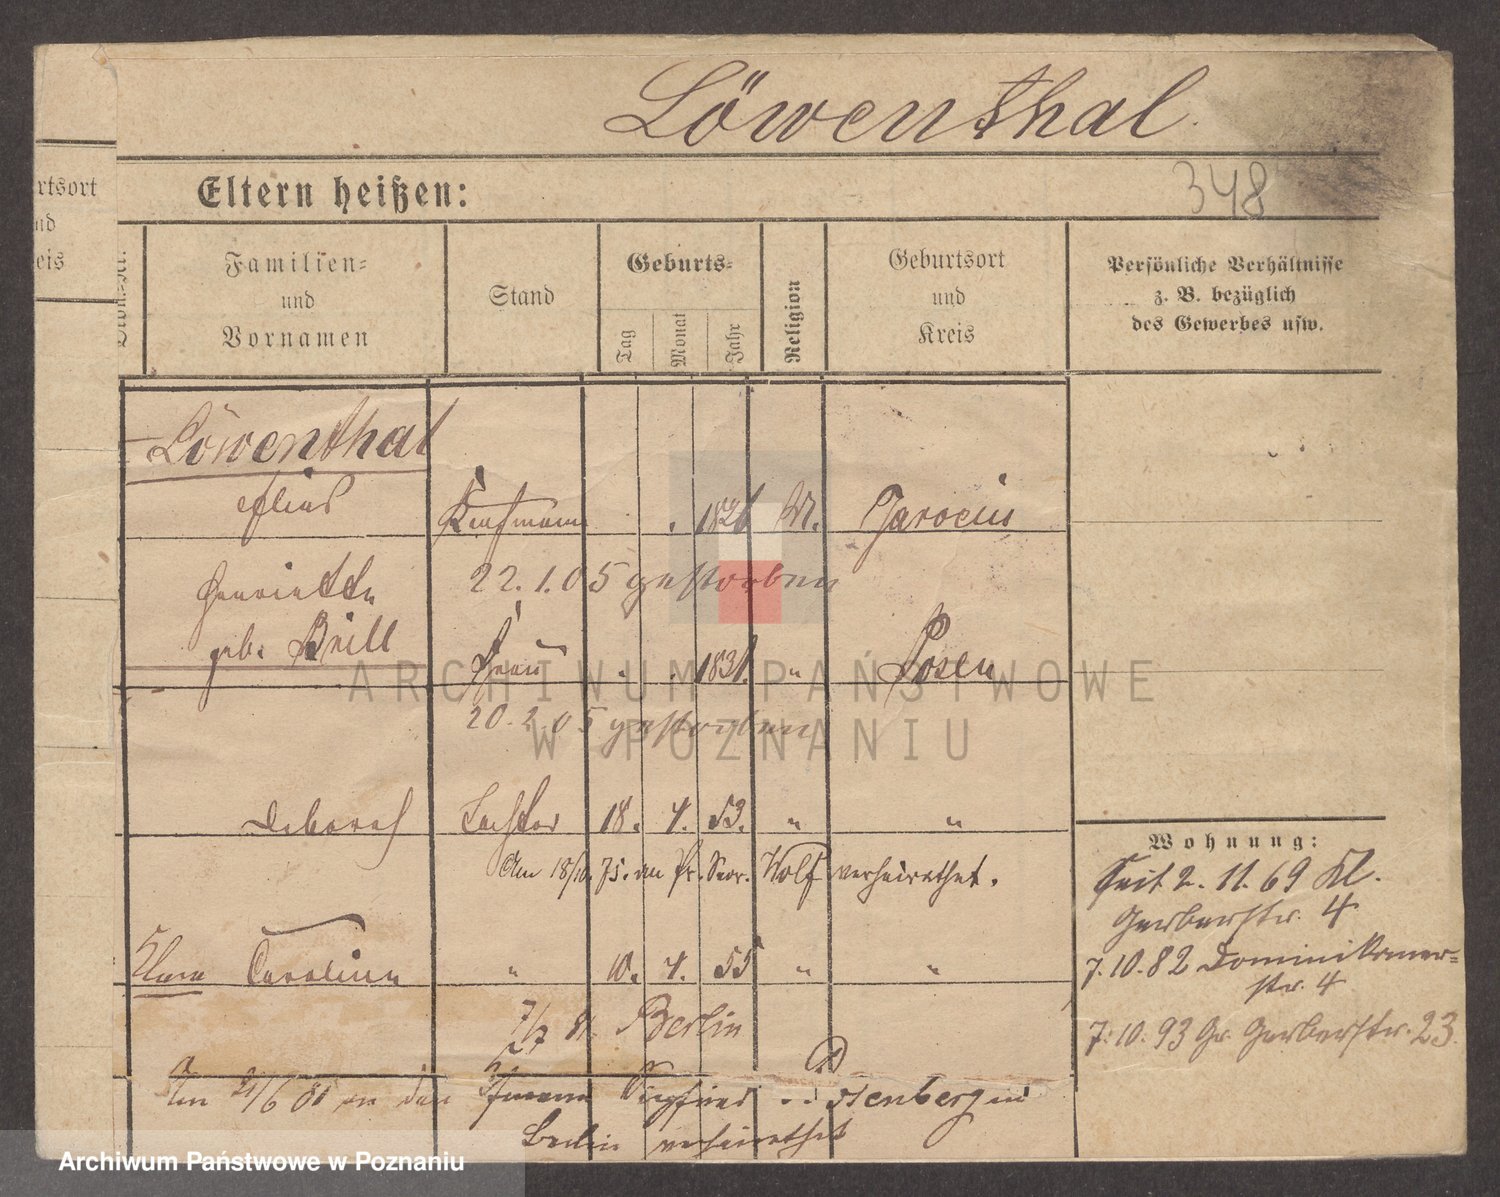 Löwenthal.
348
Eltern heißen:
rtsort
nd
eis
Familien=
und
Vornamen
Stand
Geburts=
Tag
Monat
Jahr
Religion
Geburtsort
und
Kreis
Persönliche Verhältnisse
z. B. bezüglich
des Gewerbes usw.
Löwenthal
Elias Kaufmann 1826 M. Jarocin
Henriette 22.1.05 gestorben
geb. Brill Frau 1831. " Posen
20.2.05 gestorben
Deborah Tochter 18. 4. 53. " "
Am 18/10. 75. an Wolf verheirathet.
Clara Caroline " 10. 4. 55 " "
7/7 81. Berlin
Am 21/6 81 an den Kfmann Siegfried in
Berlin verheirathet
Wohnung:
Seit 2. 11. 69 Kl.
Gerberstr. 4
7. 10. 82 Dominikaner=
str. 4
7. 10. 93 Gr. Gerberstr. 23.
ARCHIWUM PAŃSTWOWE
W POZNANIU
Archiwum Państwowe w Poznaniu